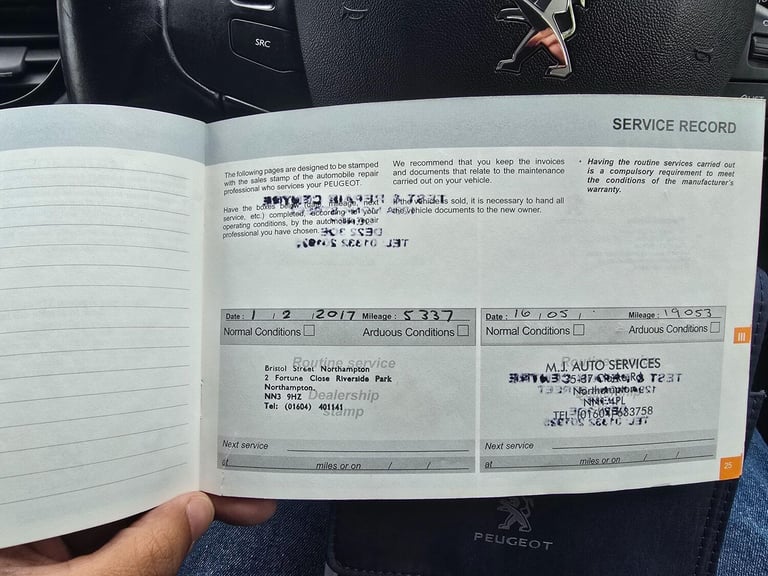 SRC
SERVICE RECORD
The following pages are designed to be stamped
with the sales stamp of the automobile repair
professional who services your PEUGEOT.
Have the boxes below (date, mileage, next
service, etc.) completed, according to your
operating conditions, by the automobile repair
professional you have chosen.
We recommend that you keep the invoices
and documents that relate to the maintenance
carried out on your vehicle.
If the vehicle is sold, it is necessary to hand all
the vehicle documents to the new owner.
• Having the routine services carried out
is a compulsory requirement to meet
the conditions of the manufacturer's
warranty.
Date : 1 / 2 / 2017 Mileage : 5337
Normal Conditions Arduous Conditions
Routine service
Dealership
stamp
Bristol Street Northampton
2 Fortune Close Riverside Park
Northampton.
NN3 9HZ
Tel: (01604) 401141
Next service
at miles or on / /
Date : 16 / 05 / Mileage : 19053
Normal Conditions Arduous Conditions
M.J. AUTO SERVICES
Northampton
TEL: (01604) 683758
Next service
at miles or on / /
III
25
PEUGEOT